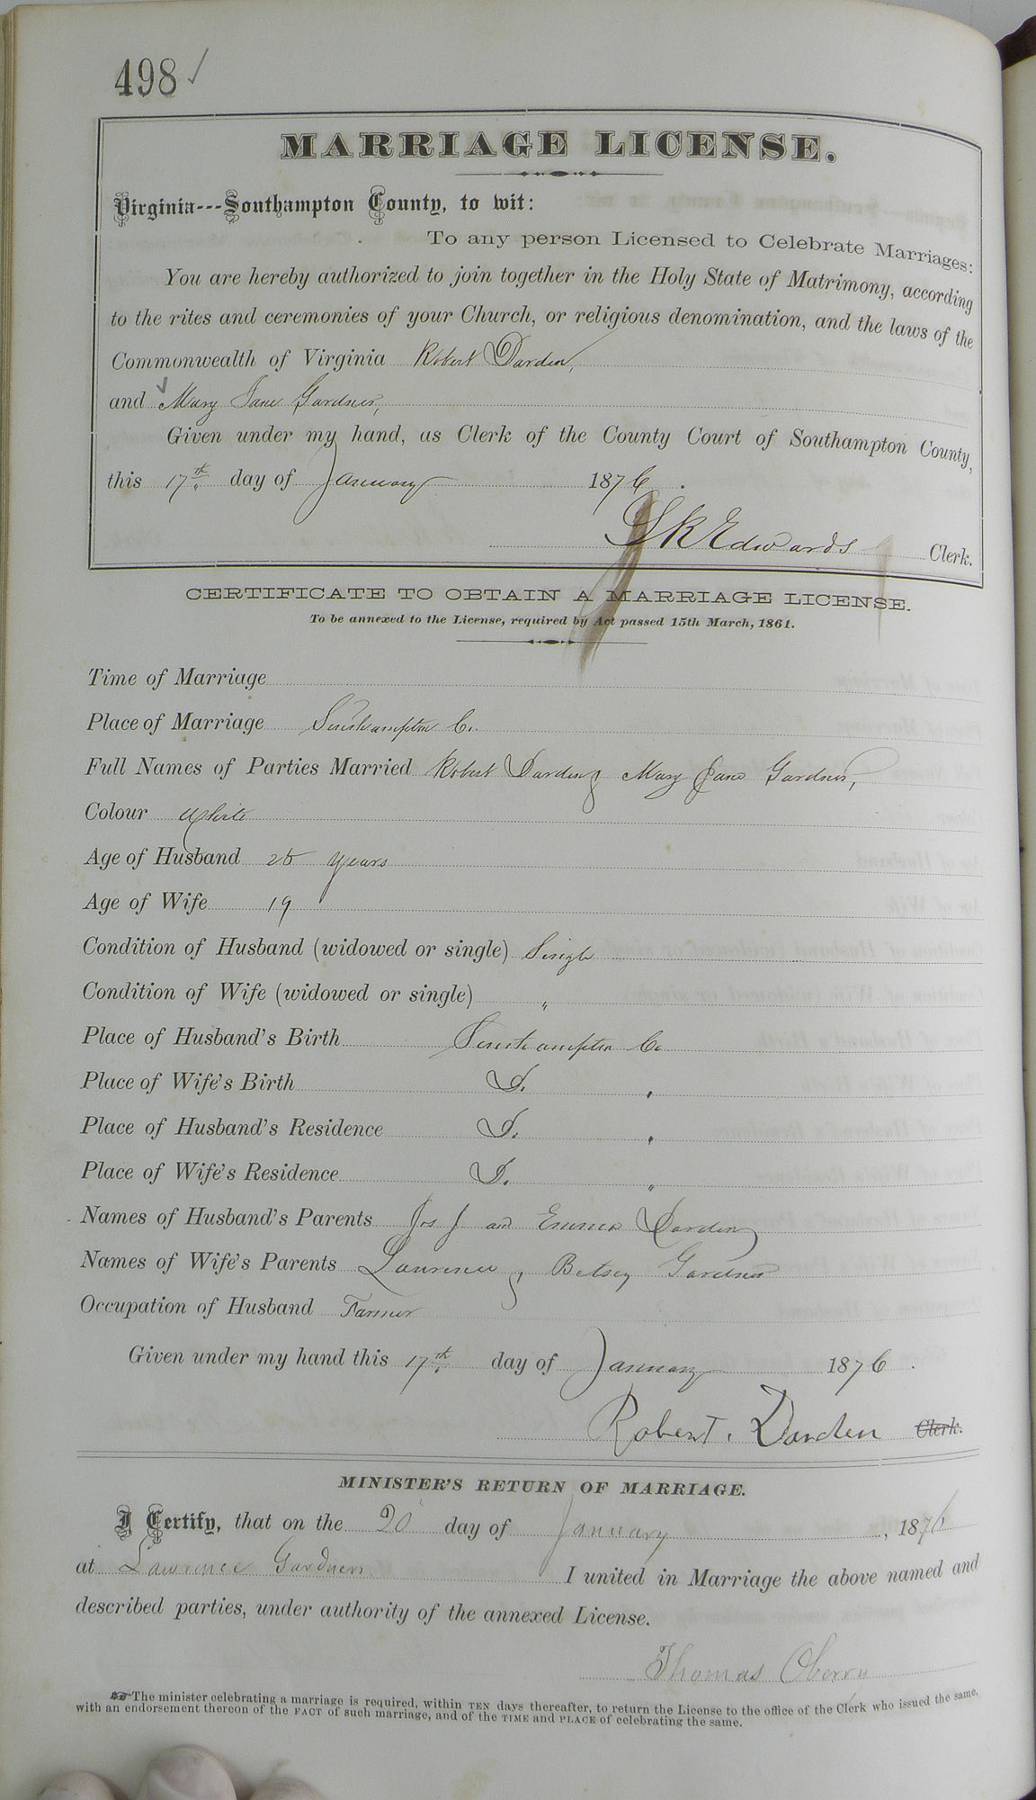 498 ✓
MARRIAGE LICENSE.
Virginia---Southampton County, to wit:
To any person Licensed to Celebrate Marriages:
You are hereby authorized to join together in the Holy State of Matrimony, according
to the rites and ceremonies of your Church, or religious denomination, and the laws of the
Commonwealth of Virginia Robert Darden,
and Mary Jane Gardner,
Given under my hand, as Clerk of the County Court of Southampton County,
this 17th day of January 1876.
L R Edwards Clerk.
CERTIFICATE TO OBTAIN A MARRIAGE LICENSE.
To be annexed to the License, required by Act passed 15th March, 1861.
Time of Marriage
Place of Marriage Southampton Co.
Full Names of Parties Married Robert Darden & Mary Jane Gardner,
Colour White
Age of Husband years
Age of Wife 19
Condition of Husband (widowed or single) Single
Condition of Wife (widowed or single) "
Place of Husband's Birth Southampton Co
Place of Wife's Birth D. "
Place of Husband's Residence D. "
Place of Wife's Residence D. "
Names of Husband's Parents Jos J and Darden
Names of Wife's Parents Lawrence & Betsey Gardner
Occupation of Husband Farmer
Given under my hand this 17th day of January 1876.
Robert. Darden Clerk.
MINISTER'S RETURN OF MARRIAGE.
I Certify, that on the 20 day of January, 1876
at Lawrence Gardners I united in Marriage the above named and
described parties, under authority of the annexed License.
Thomas Oberry
The minister celebrating a marriage is required, within TEN days thereafter, to return the License to the office of the Clerk who issued the same,
with an endorsement thereon of the FACT of such marriage, and of the TIME and PLACE of celebrating the same.